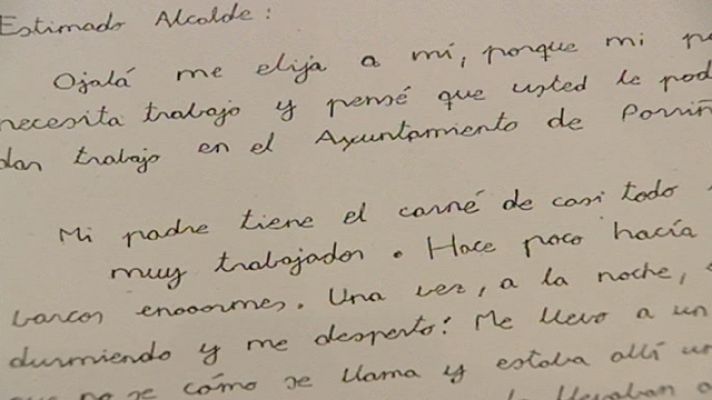 Estimado Alcalde:
Ojalá me elija a mí, porque mi
necesita trabajo y pensé que usted le
trabajo en el Ayuntamiento de
Mi padre tiene el carné de casi todo
muy trabajador. Hace poco hacía
barcos enooormes. Una vez, a la noche,
durmiendo y me despertó! Me llevo a un
no se cómo se llama y estaba allí
llevaban